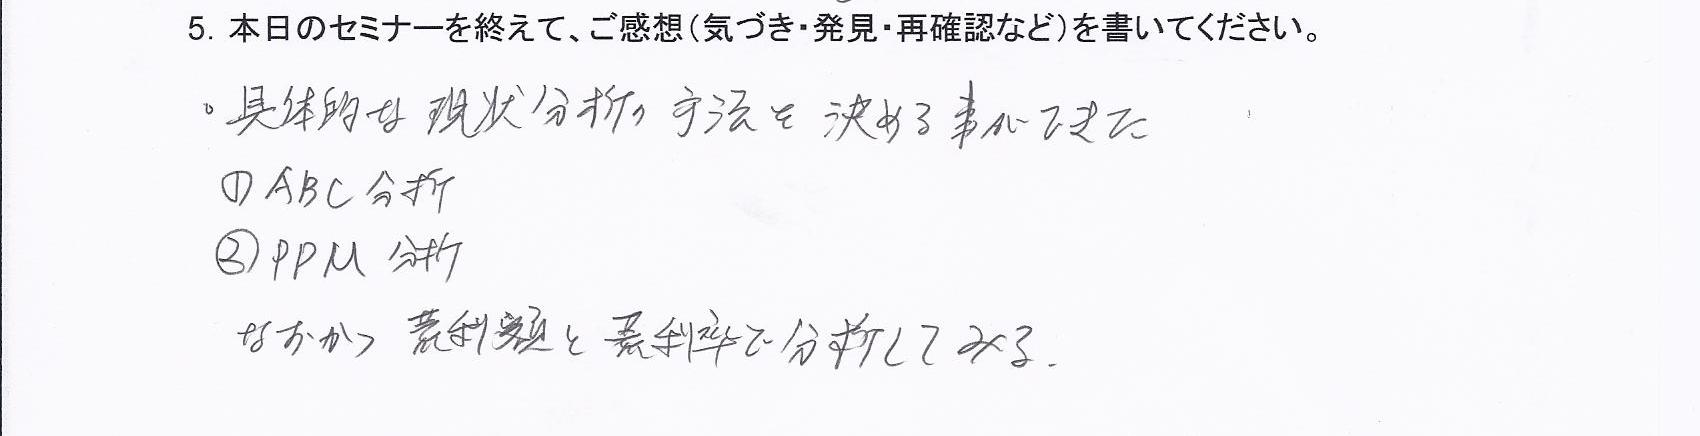 5. 本日のセミナーを終えて、ご感想(気づき・発見・再確認など)を書いてください。
。具体的な現状分析の手法を決める事ができた
① ABC分析
② PPM 分析
なおかつ 荒利額と荒利率で分析してみる.